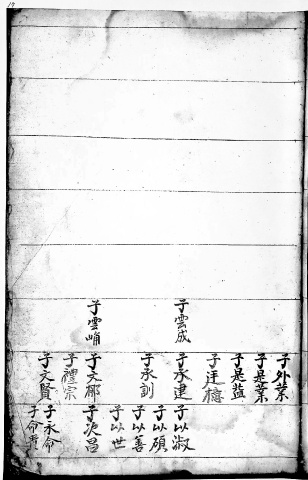 子雲成
子雲
子外
子是
子是益
子
子永建
子永訓
子文郁
子禮宗
子文賢
子以淑
子以碩
子以善
子以世
子次昌
子永命
子命